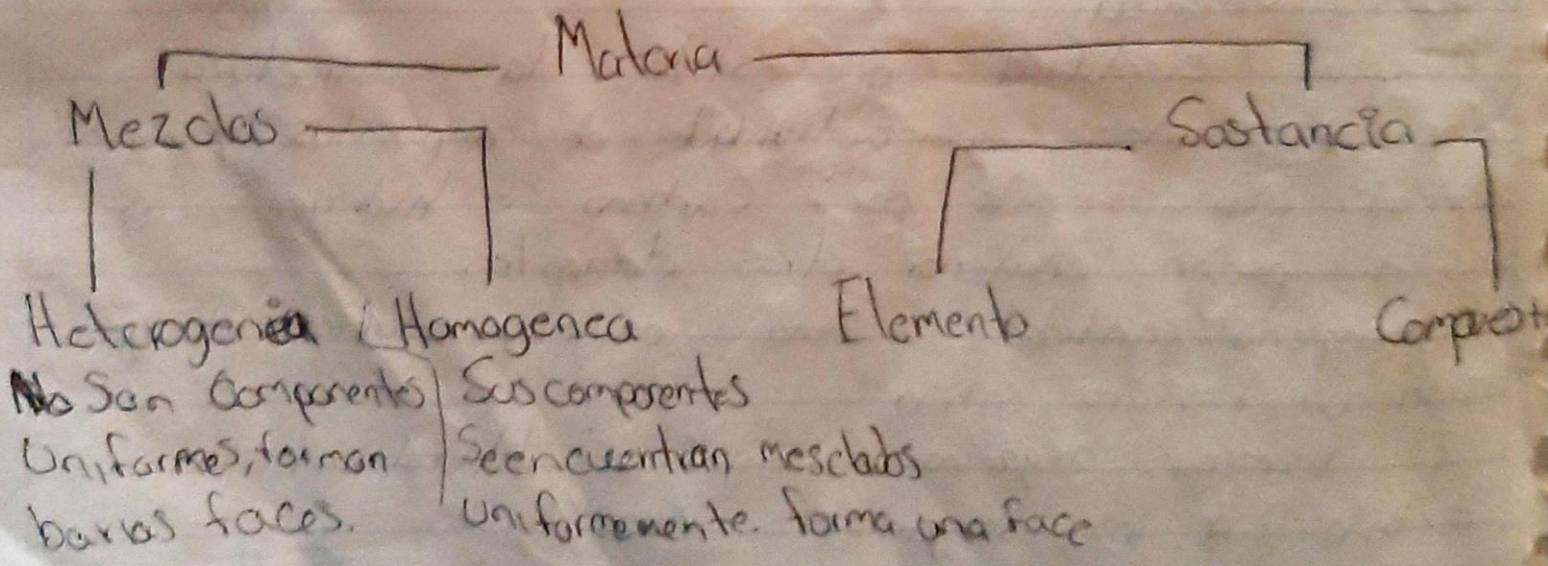 Materia
Mezclas Sustancia
Heterogenea Homogenea Elemento Compuest
No Son Componentes
Uniformes, forman
barias faces.
Sus componentes
Se encuentran mesclados
uniformemente. forma una face